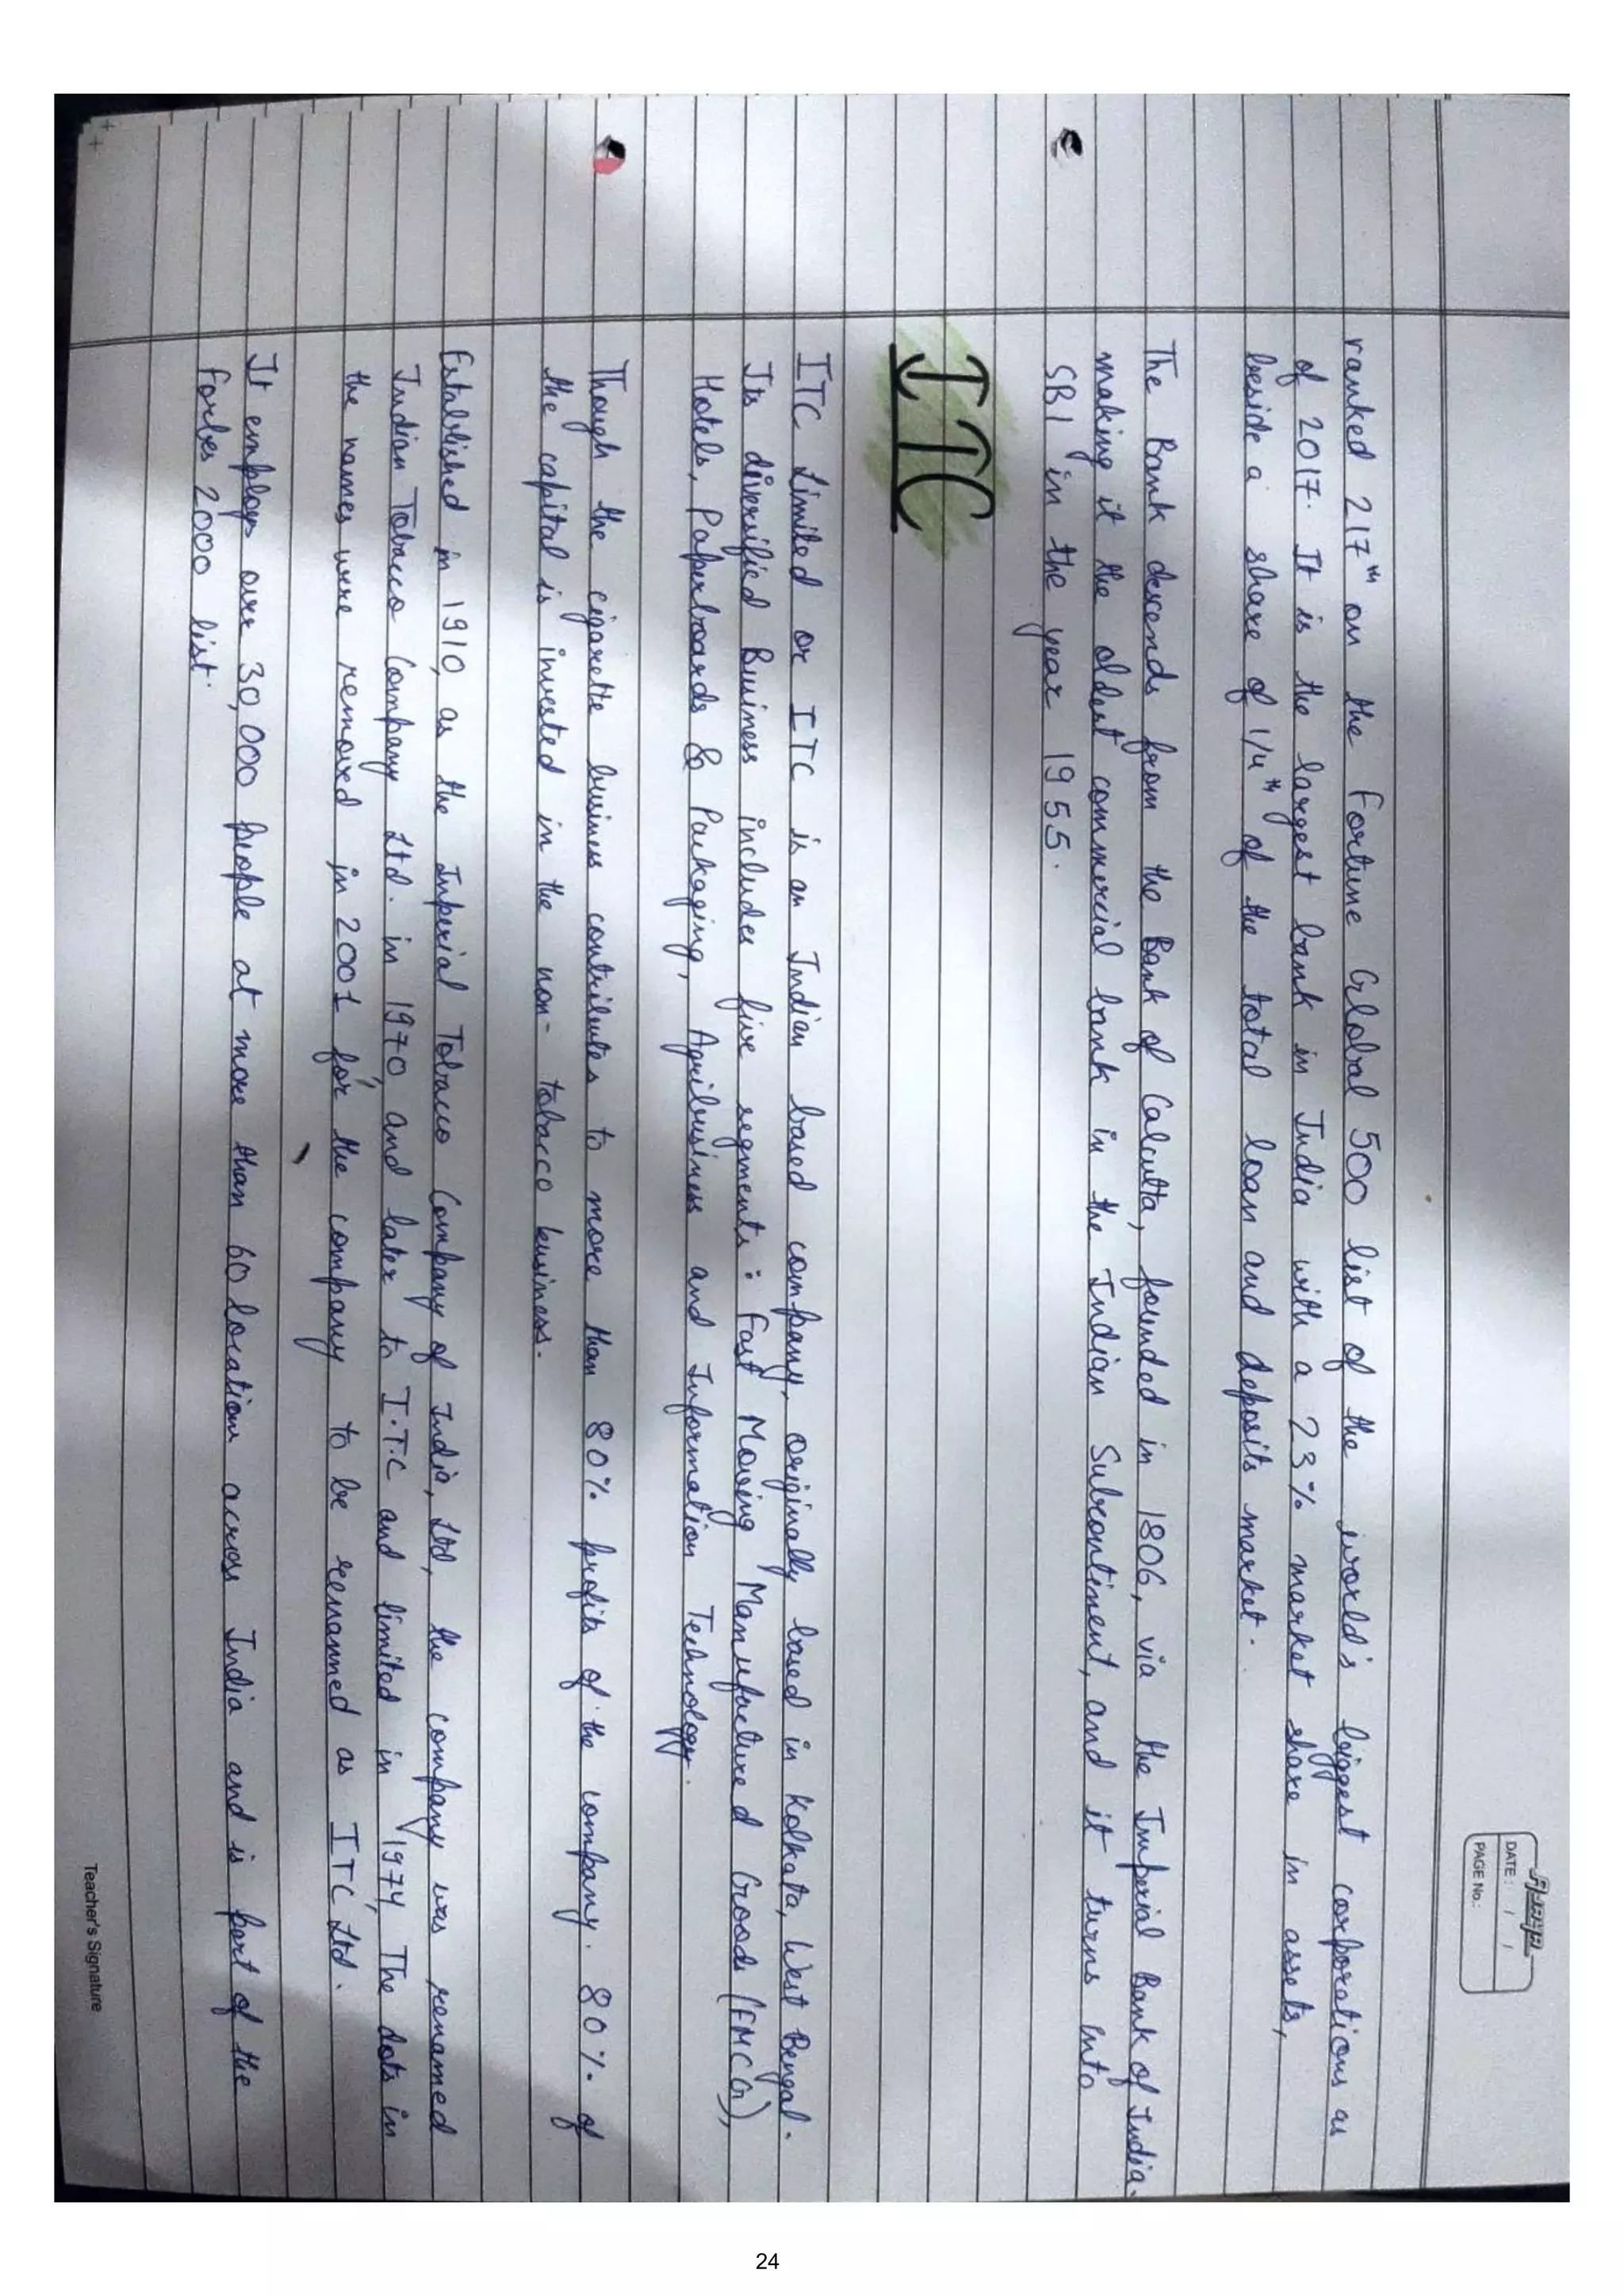 DATE: / /
PAGE No.:
ranked 217th on the Fortune Global 500 list of the world's biggest corporations as
of 2017. It is the largest bank in India with a 23% market share in assets,
beside a share of 1/4th of the total loan and deposits market.
The Bank descends from the Bank of Calcutta, founded in 1806, via the Imperial Bank of India.
making it the oldest commercial bank in the Indian Subcontinent, and it turns into
SBI in the year 1955.
ITC
ITC Limited or ITC is an Indian based company, originally based in Kolkata, West Bengal.
Its diversified Business includes five segments: Fast Moving Manufactured Goods (FMCG),
Hotels, Paperboards & Packaging, Agribusiness and Information Technology.
Though the cigarette business contributes to more than 80% profits of the company. 80% of
the capital is invested in the non-tobacco business.
Established in 1910, as the Imperial Tobacco Company of India, Ltd, the company was renamed
Indian Tobacco Company Ltd. in 1970, and later to I.T.C and limited in 1974. The dots in
the names were removed in 2001 for the company to be renamed as ITC, Ltd.
It employs over 30,000 people at more than 60 locations across India and is part of the
Forbes 2000 list.
Teacher's Signature
24